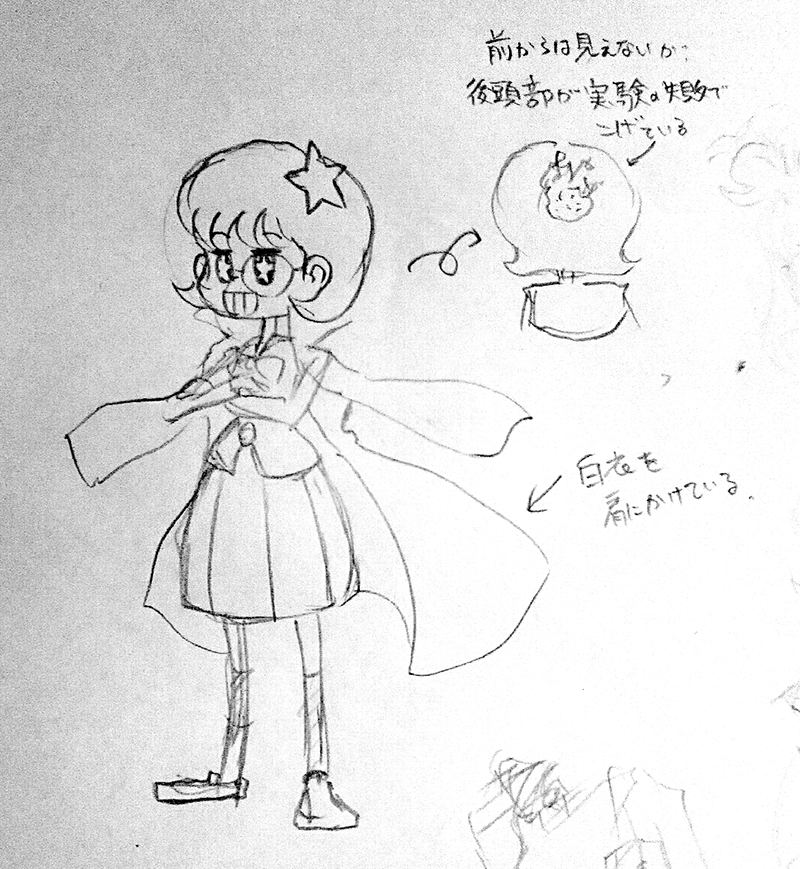 前からは見えないが、
後頭部が実験の失敗で
こげている
白衣を
肩にかけている。